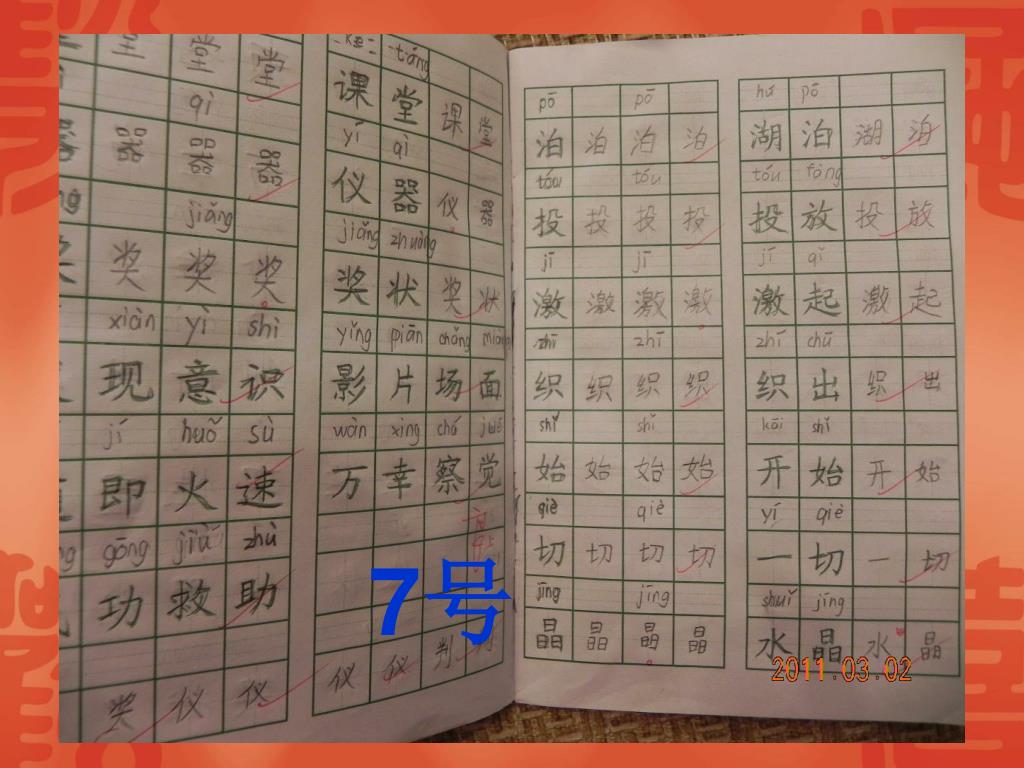 堂 堂 堂
qì
器 器 器
jiǎng
奖 奖 奖
xiàn yì shi
现 意 识
jí huǒ sù
即 火 速
gōng jiù zhù
功 救 助
奖 仪 仪
táng
课 堂 课 堂
yí qì
仪 器 仪 器
jiǎng zhuàng
奖 状 奖 状
yǐng piān chǎng
影 片 场 面
wàn xìng chá jué
万 幸 察 觉
仪 仪 判
pō pō
泊 泊 泊 泊
tóu tóu
投 投 投 投
jī jī
激 激 激 激
zhī zhī
织 织 织 织
shǐ shǐ
始 始 始 始
qiè qiè
切 切 切 切
jīng jīng
晶 晶 晶 晶
hú pō
湖 泊 湖 泊
tóu fàng
投 放 投 放
jī qǐ
激 起 激 起
zhī chū
织 出 织 出
kāi shǐ
开 始 开 始
yí qiè
一 切 一 切
shuǐ jīng
水 晶 水 晶
7号
2011.03.02